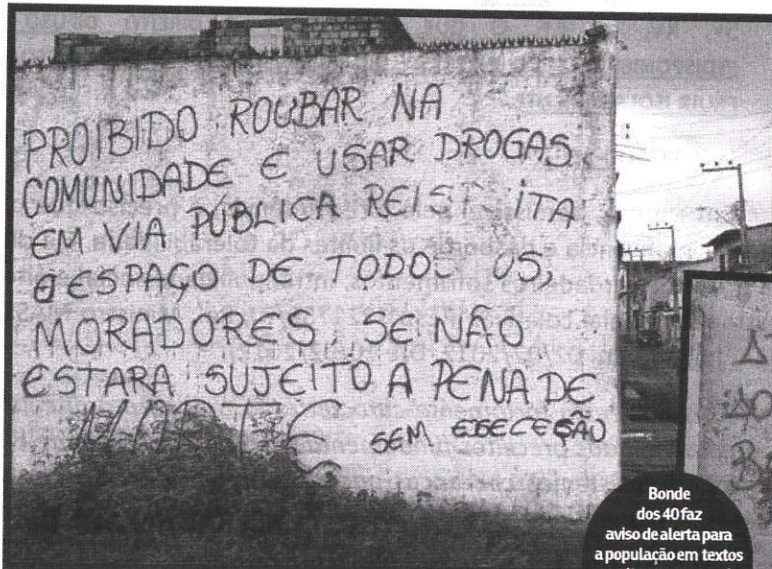 PROIBIDO ROUBAR NA
COMUNIDADE E USAR DROGAS
EM VIA PÚBLICA
O ESPAÇO DE TODOS OS,
MORADORES, SE NÃO
ESTARA SUJEITO A PENA DE
MORTE SEM
Bonde
dos 40 faz
aviso de alerta para
a população em textos